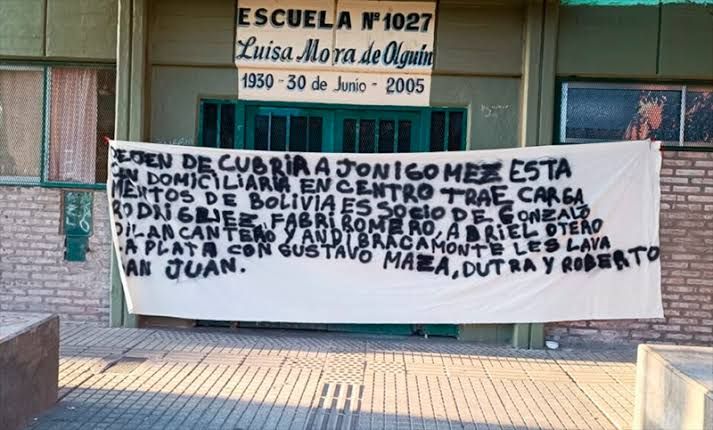 ESCUELA Nº 1027
Luisa Mora de Olguín
1930 - 30 de Junio - 2005
DEJEN DE CUBRIR A JONI GOMEZ ESTA
EN DOMICILIARIA EN CENTRO TRAE CARGA
MENTOS DE BOLIVIA ES SOCIO DE GONZALO
RODRIGUEZ, FABRI ROMERO, ABRIEL OTERO
DILAN CANTERO Y ANDI BRACAMONTE LES LAVA
LA PLATA CON GUSTAVO MAZA, DUTRA Y ROBERTO
SAN JUAN.